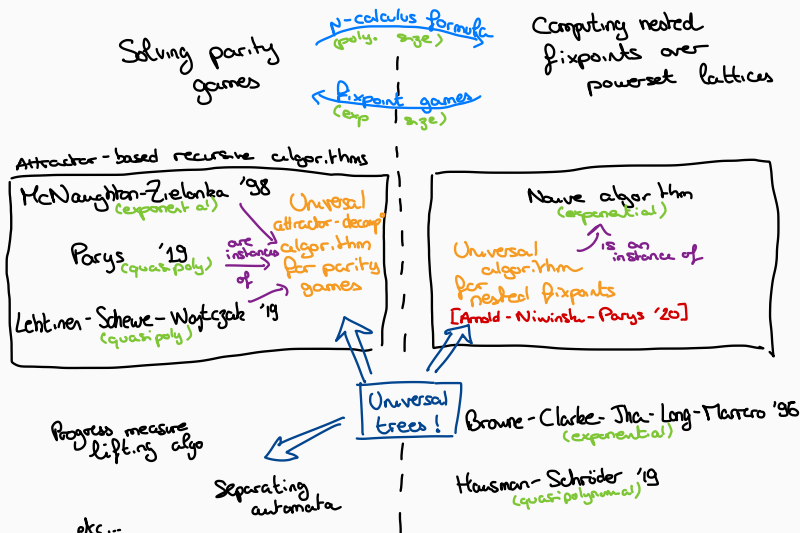 Solving parity
games
μ-calculus formula
(poly. size)
Fixpoint games
(exp size)
Computing nested
fixpoints over
powerset lattices
Attractor-based recursive algorithms
McNaughton-Zielonka '98
(exponential)
Parys '19
(quasipoly)
Lehtinen-Schewe-Wojtczak '19
(quasipoly)
are
instances
of
Universal
attractor-decomp°
algorithm
for parity
games
Naive algorithm
(exponential)
is an
instance of
Universal
algorithm
for
nested fixpoints
[Arnold-Niwinski-Parys '20]
Universal
trees!
Progress measure
lifting algo
Separating
automata
etc...
Browne-Clarke-Jha-Long-Marrero '96
(exponential)
Hausman-Schröder '19
(quasipolynomial)